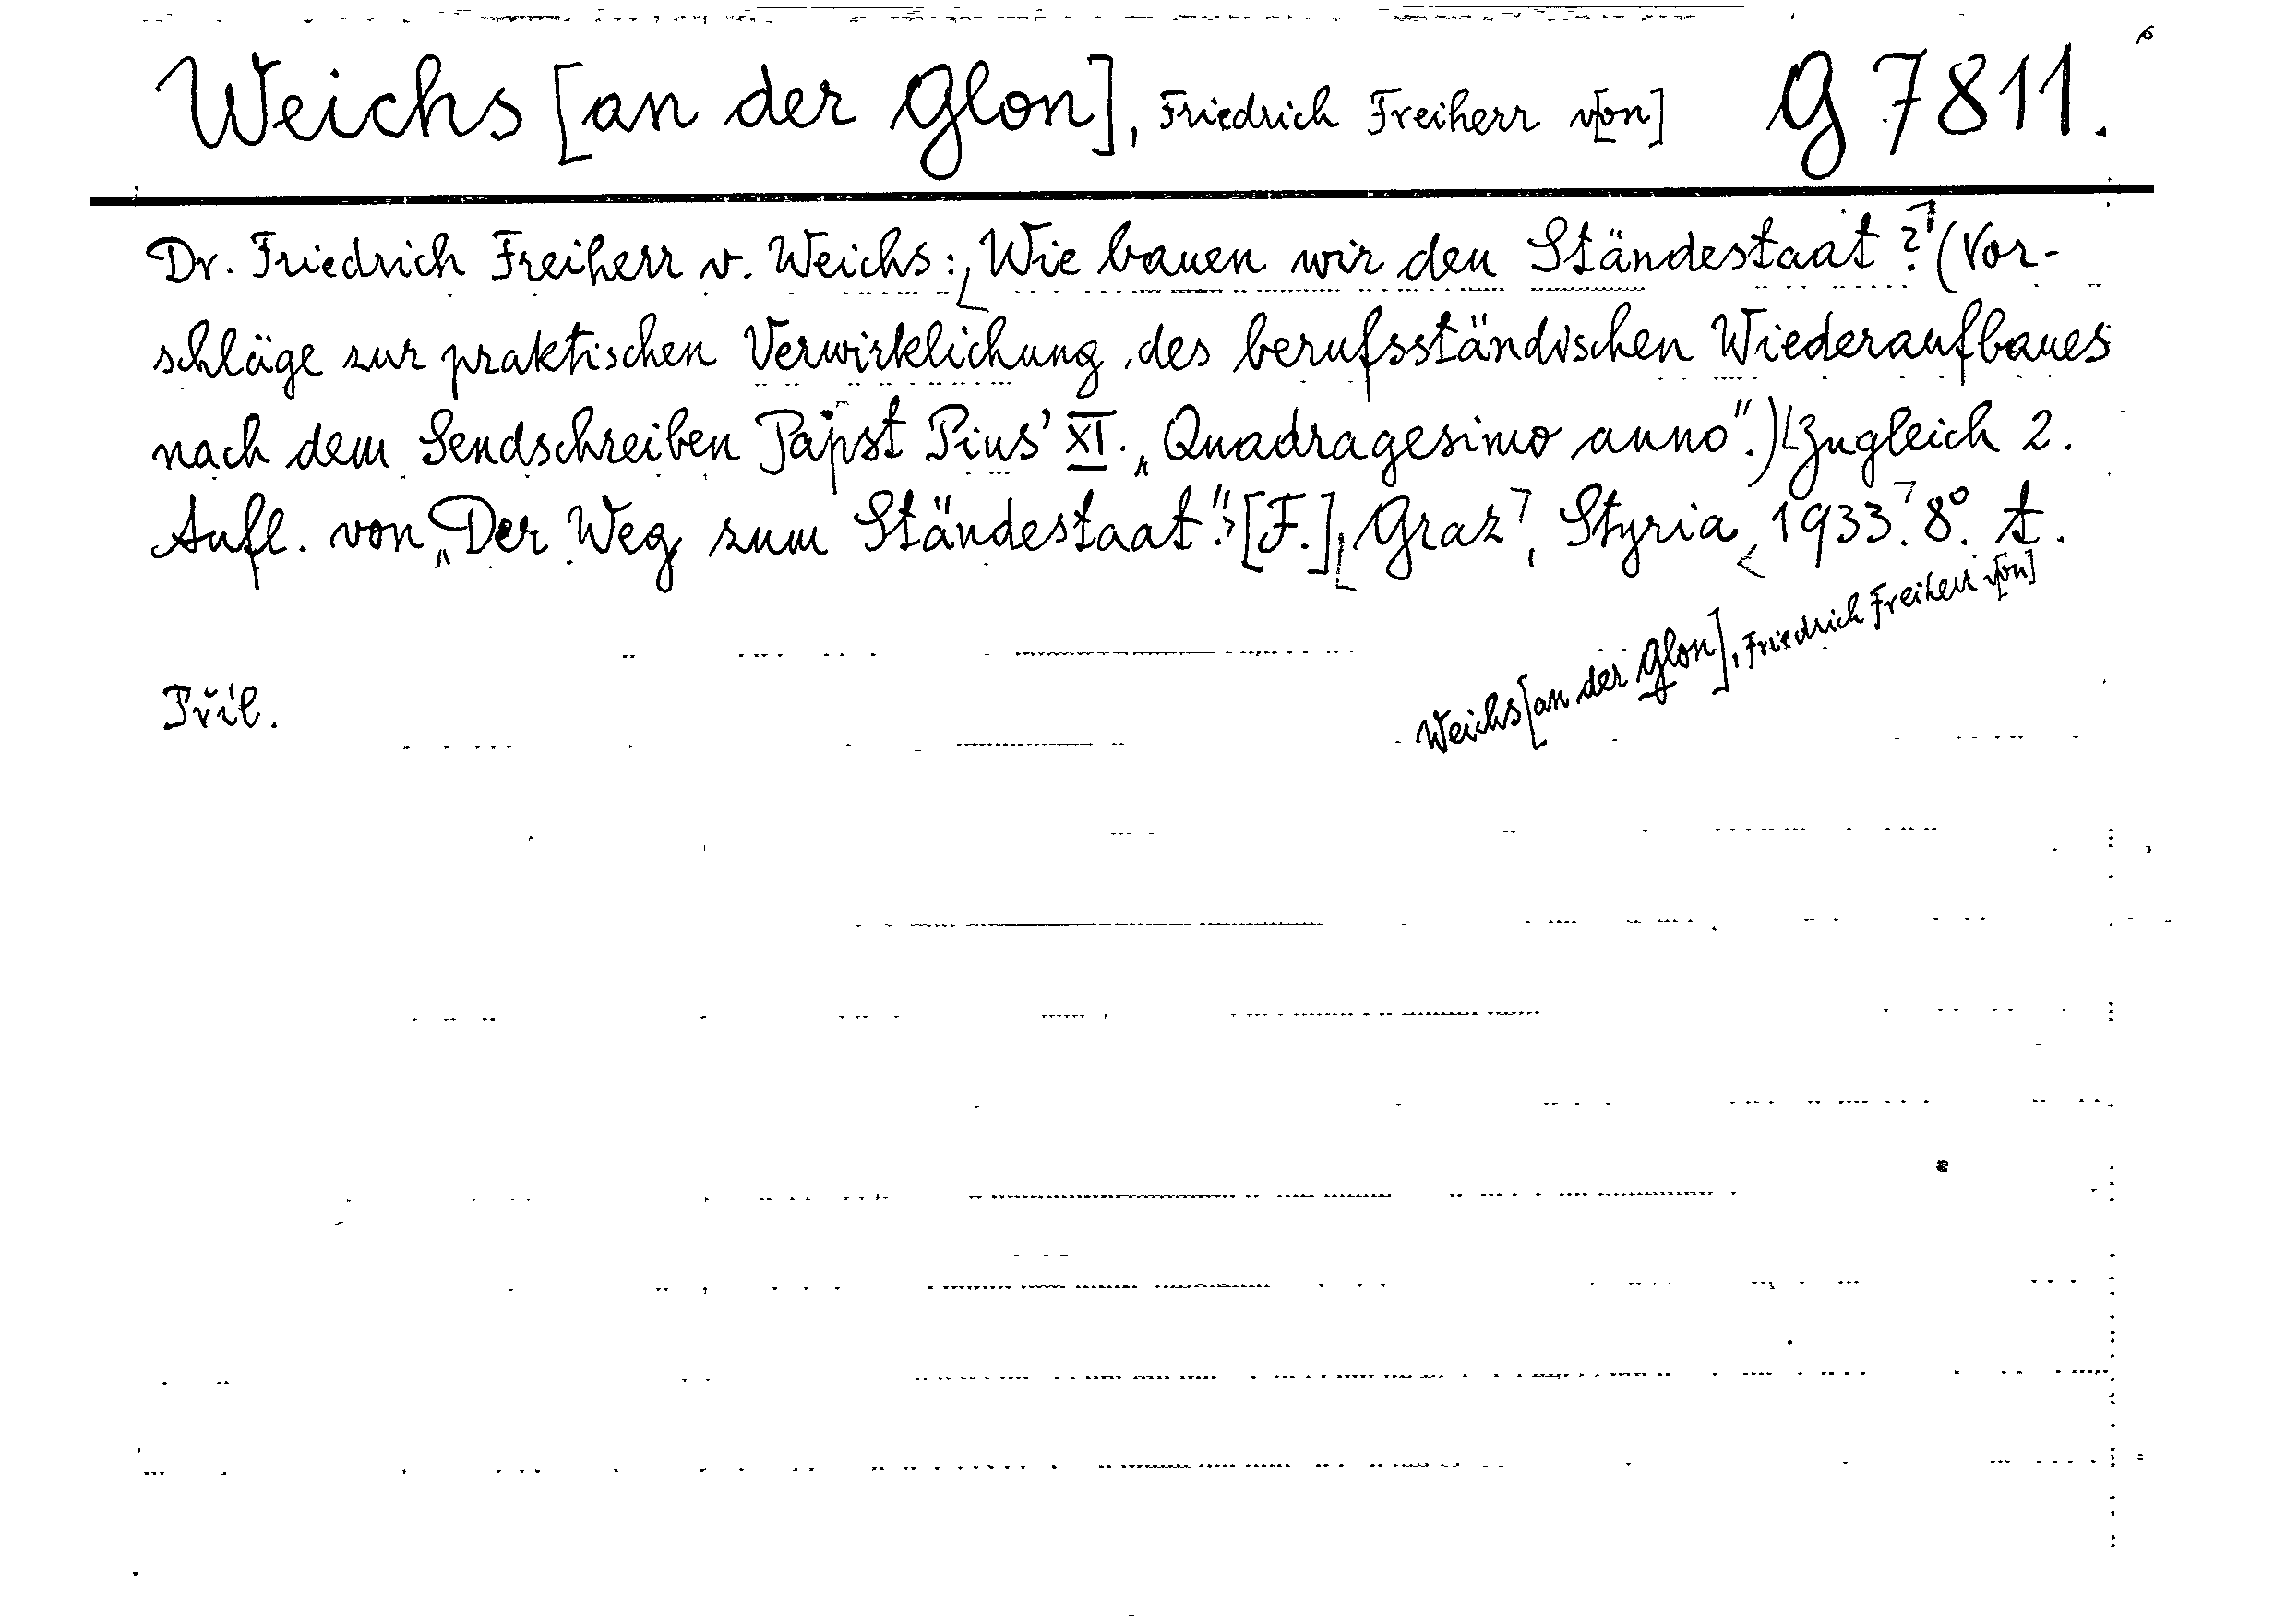 Weichs [an der Glon], Friedrich Freiherr v[on] G 7811.
Dr. Friedrich Freiherr v. Weichs: Wie bauen wir den Ständestaat? (Vor-
schläge zur praktischen Verwirklichung des berufsständischen Wiederaufbaues
nach dem Sendschreiben Papst Pius' XI. „Quadragesimo anno".) Zugleich 2.
Aufl. von „Der Weg zum Ständestaat". [F.], Graz, Styria, 1933. 8°. A.
Weichs [an der Glon], Friedrich Freiherr v[on]
Příl.